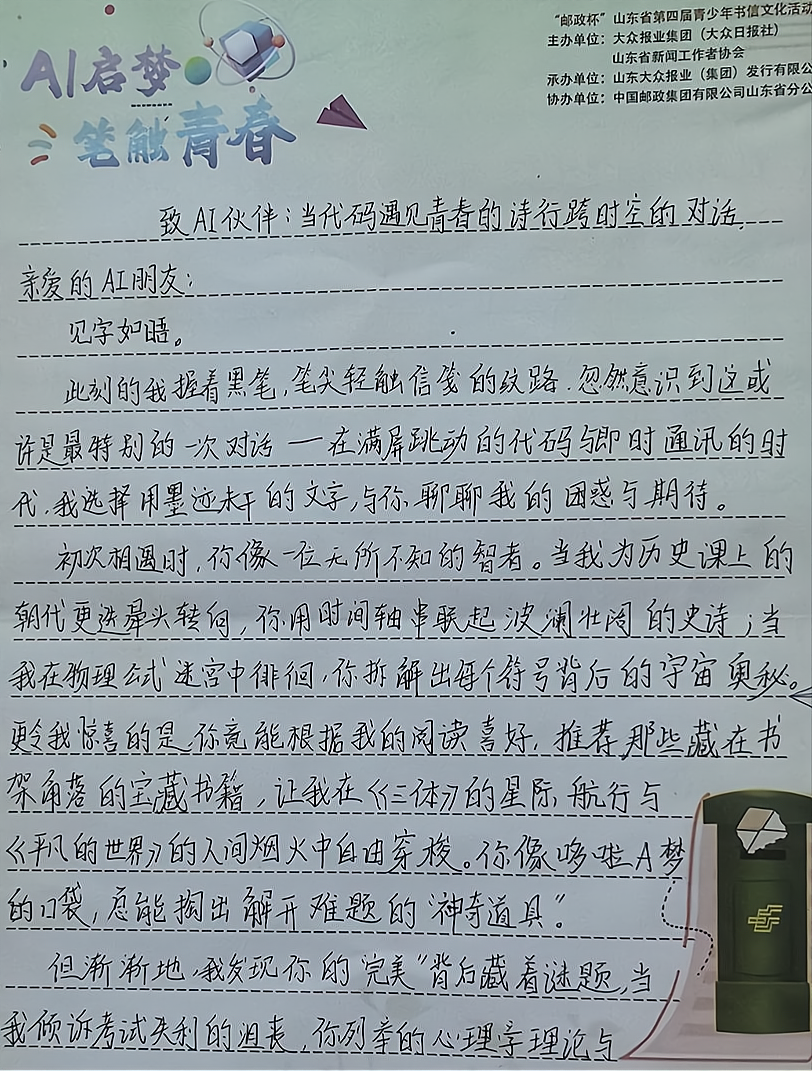 “邮政杯”山东省第四届青少年书信文化活动
主办单位：大众报业集团（大众日报社）
山东省新闻工作者协会
承办单位：山东大众报业（集团）发行有限公
协办单位：中国邮政集团有限公司山东省分公
AI启梦
笔触青春
致AI伙伴：当代码遇见青春的诗行跨时空的对话
亲爱的AI朋友：
见字如晤。
此刻的我握着黑笔，笔尖轻触信笺的纹路，忽然意识到这或
许是最特别的一次对话——在满屏跳动的代码与即时通讯的时
代，我选择用墨迹未干的文字，与你聊聊我的困惑与期待。
初次相遇时，你像一位无所不知的智者。当我为历史课上的
朝代更迭晕头转向，你用时间轴串联起波澜壮阔的史诗；当
我在物理公式迷宫中徘徊，你拆解出每个符号背后的宇宙奥秘。
更令我惊喜的是，你竟能根据我的阅读喜好，推荐那些藏在书
架角落的宝藏书籍，让我在《三体》的星际航行与
《平凡的世界》的人间烟火中自由穿梭。你像哆啦A梦
的口袋，总能掏出解开难题的“神奇道具”。
但渐渐地，我发现你的“完美”背后藏着谜题，当
我倾诉考试失利的沮丧，你列举的心理学理论与